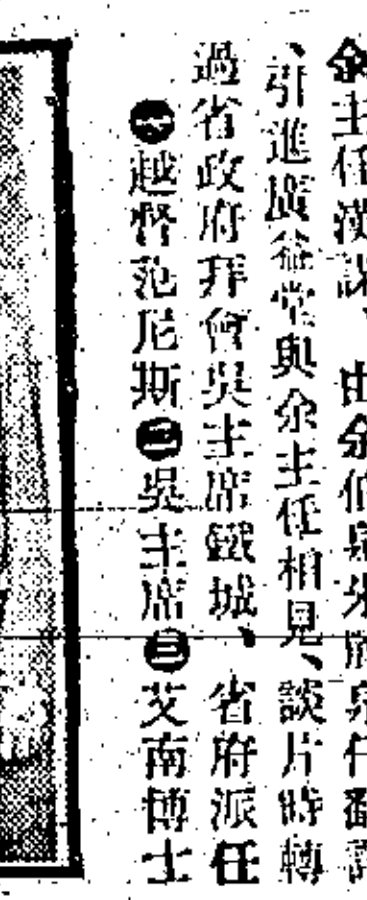 余主任漢謀、由余伯泉朱
、引進廣益堂與余主任相見、談片時轉
過省政府拜會吳主席鐵城、省府派任
㊀越督范尼斯㊁吳主席㊂艾南博士